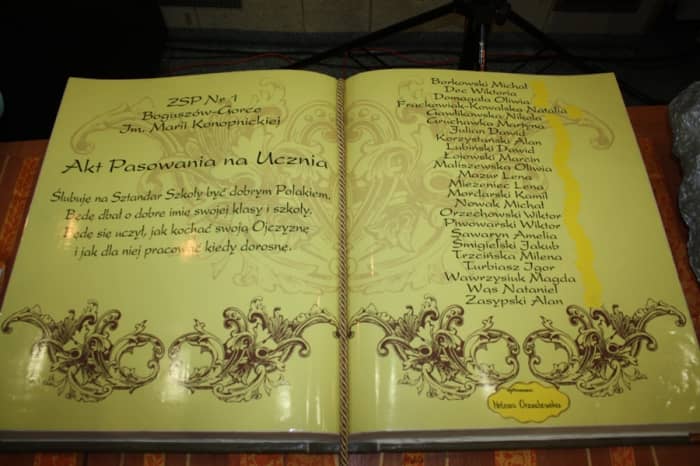 ZSP Nr 1
Boguszów-Gorce
Im. Marii Konopnickiej
Akt Pasowania na Ucznia
Ślubuję na Sztandar Szkoły być dobrym Polakiem,
Będę dbał o dobre imię swojej klasy i szkoły.
Będę się uczył, jak kochać swoją Ojczyznę
i jak dla niej pracować kiedy dorosnę.
Borkowski Michał
Dec Wiktoria
Domagała Oliwia
Frąckowiak-Kowalska Natalia
Gawlikowska Nikola
Gruchawka Martyna
Julian Dawid
Korzystański Alan
Lubiński Dawid
Łojowski Marcin
Maliszewska Oliwia
Mazur Lena
Miezeniec Lena
Mordarski Kamil
Nowak Michał
Orzechowski Wiktor
Piwowarski Wiktor
Sawaryn Amelia
Śmigielski Jakub
Trzcińska Milena
Turbiasz Igor
Wawrzysiuk Magda
Wąs Nataniel
Zasypski Alan
Helena